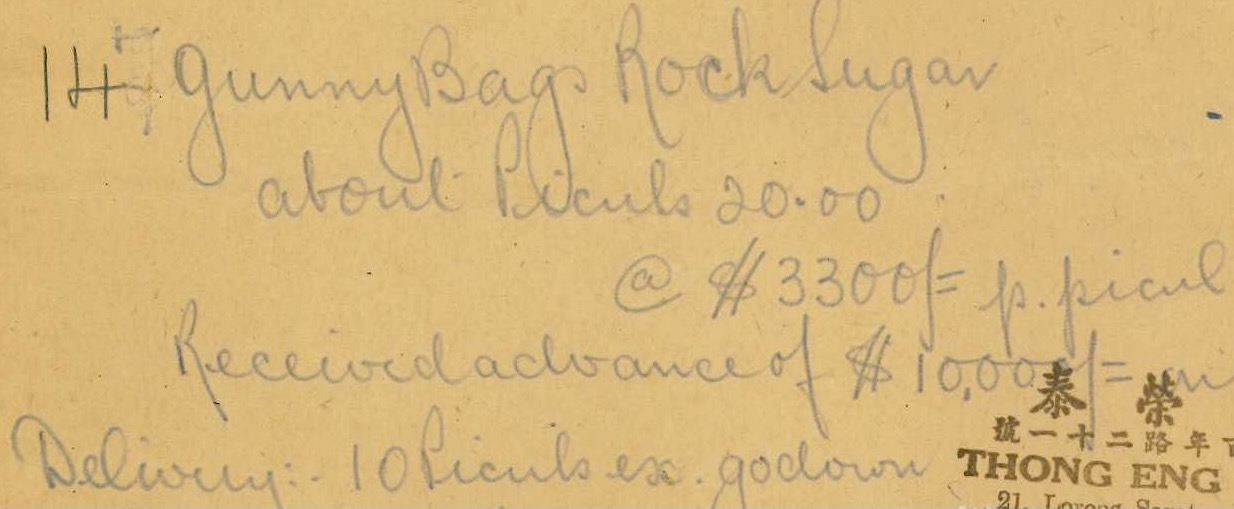 14 Gunny Bags Rock Sugar
about Piculs 20.00
@ $3300/= p. picul
Received advance of $10,000/=
Delivery:- 10 Piculs ex. godown
泰 榮
號一十二路年百
THONG ENG
21, Lorong